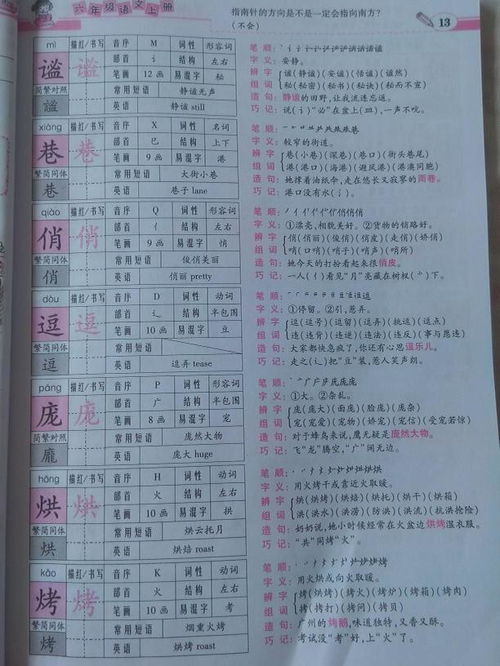 六年级语文上册
指南针的方向是不是一定会指向南方?
(不会)
13
mì 描红/书写 音序 M 词性 形容词
谧 谧 部首 讠 结构 左右
笔画 12画 易混字 秘
繁简对照 常用短语 静谧无声
謐 英语 静谧 still
笔顺:
字义:安静。
辨字组词 谧(静谧)(安谧)(恬谧)(谧然)
秘(秘密)(秘书)(秘诀)(秘而不宣)
造句:静谧的田野,让我流连忘返。
巧记:说(讠)"必"在盆上(皿),一声不吭。
xiàng 描红/书写 音序 X 词性 名词
巷 巷 部首 已 结构 上下
笔画 9画 易混字 港
繁简同体 常用短语 大街小巷
巷 英语 巷子 lane
笔顺:
字义:较窄的街道。
辨字组词 巷(小巷)(深巷)(巷口)(街头巷尾)
港(港口)(海港)(避风港)(港湾同胞)
造句:她撑着油纸伞,走在悠长又寂寥的雨巷。
巧记:港口没有水(氵)。
qiào 描红/书写 音序 Q 词性 形容词
俏 俏 部首 亻 结构 左右
笔画 9画 易混字 悄
繁简同体 常用短语 俊俏美丽
俏 英语 俏丽 pretty
笔顺:
字义:①漂亮,相貌美好。②货物的销路好。
辨字组词 俏(俏丽)(俊俏)(俏皮)(走俏)(娇俏)
哨(哨子)(哨口)(哨兵)(哨所)
造句:她今天的打扮看起来很俏皮。
巧记:一人(亻)看见"月"亮藏在树杈上。
dòu 描红/书写 音序 D 词性 动词
逗 逗 部首 辶 结构 半包围
笔画 10画 易混字 豆
繁简同体 常用短语
逗 英语 逗弄 tease
笔顺:
字义:①停留。②引,惹弄。
辨字组词 逗(逗号)(逗留)(逗弄)(挑逗)(逗点)
违(违背)(违逆)(违法)(违反)(事与愿违)
造句:大家都快急疯了,你还有心思逗乐儿。
巧记:走之(辶)把"豆"装,惹人笑声朗。
páng 描红/书写 音序 P 词性 形容词
庞 庞 部首 广 结构 半包围
笔画 8画 易混字 宠
繁简对照 常用短语 庞然大物
龐 英语 庞大 huge
笔顺:
字义:①大。②杂乱。
辨字组词 庞(庞大)(面庞)(脸庞)(庞杂)
宠(宠爱)(宠物)(娇宠)(宠信)(受宠若惊)
造句:对于蜂鸟来说,鹰无疑是庞然大物。
巧记:飞"龙"腾空,"广"阔无边。
hōng 描红/书写 音序 H 词性 动词
烘 烘 部首 火 结构 左右
笔画 10画 易混字 拱
繁简同体 常用短语 烘云托月
烘 英语 烘焙 roast
笔顺:
字义:用火烤干或靠近火取暖。
辨字组词 烘(烘烤)(烘焙)(烘托)(烘干)(烘箱)
洪(洪水)(洪涝)(防洪)(洪流)(抗洪抢险)
造句:奶奶说,她小时候经常在火盆边烘烤湿衣服。
巧记:"共"同烤"火"。
kǎo 描红/书写 音序 K 词性 动词
烤 烤 部首 火 结构 左右
笔画 10画 易混字 考
繁简同体 常用短语 烟熏火烤
烤 英语 烧烤 roast
笔顺:
字义:用火烘或向火取暖。
辨字组词 烤(烧烤)(烤火)(烤炉)(烤箱)(烤肉)
拷(拷打)(拷问)(拷贝)
造句:广州的烤鹅,味道独特,又香又酥。
巧记:考试没"考"好,上"火"了。